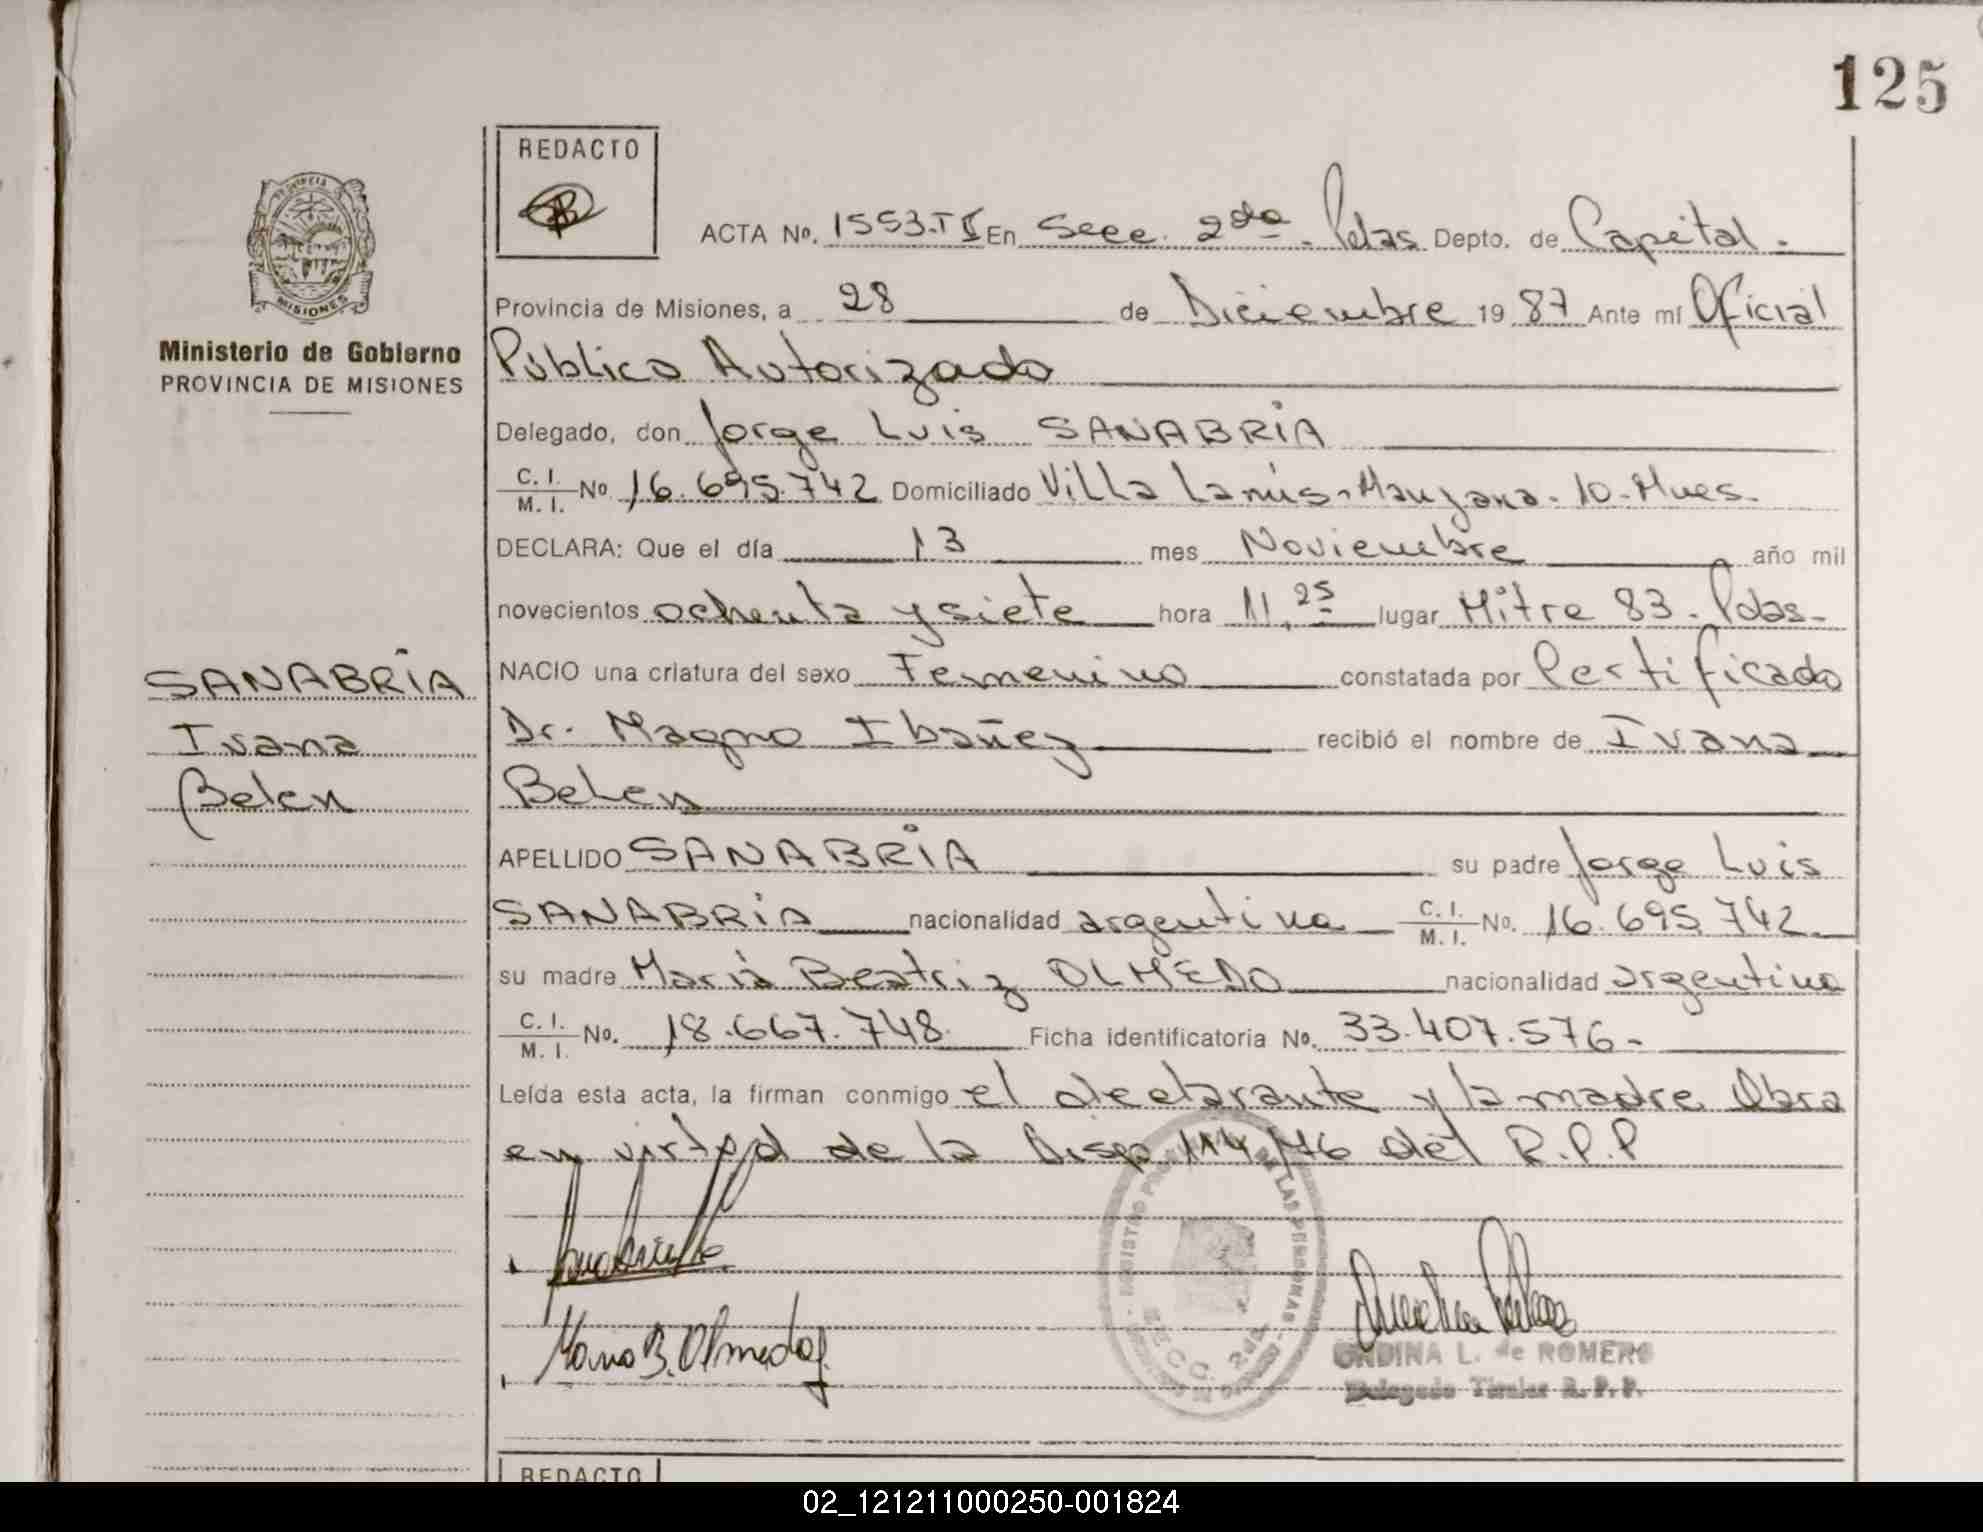 125
REDACTO
ACTA Nº. 1553.TI En Secc. 2da. Pdas Depto. de Capital.
PROVINCIA
MISIONES
Provincia de Misiones, a 28 de Diciembre 19 87 Ante mí Oficial
Ministerio de Gobierno
PROVINCIA DE MISIONES
Público Autorizado
Delegado, don Jorge Luis SANABRIA
C. I. / M. I. Nº 16.695.742 Domiciliado Villa Lanús-Manzana-10-Mnes.
DECLARA: Que el día 13 mes Noviembre año mil
novecientos ochenta y siete hora 11,25 lugar Mitre 83-Pdas-
SANABRIA
Ivana
Belen
NACIO una criatura del sexo Femenino constatada por Certificado
Dr. Magno Ibañez recibió el nombre de Ivana
Belen
APELLIDO SANABRIA su padre Jorge Luis
SANABRIA nacionalidad argentina C. I. / M. I. Nº. 16.695.742.
su madre María Beatriz OLMEDO nacionalidad argentina
C. I. / M. I. Nº. 18.667.748 Ficha identificatoria Nº. 33.407.576-
Leída esta acta, la firman conmigo el declarante y la madre Obra
en virtud de la Disp. 114/76 del R.P.P
DE LAS PERSONAS
SECC. 2da
Maria B. Olmedo
ONDINA L. de ROMERO
Delegado Titular R. P. P.
REDACTO
02_121211000250-001824